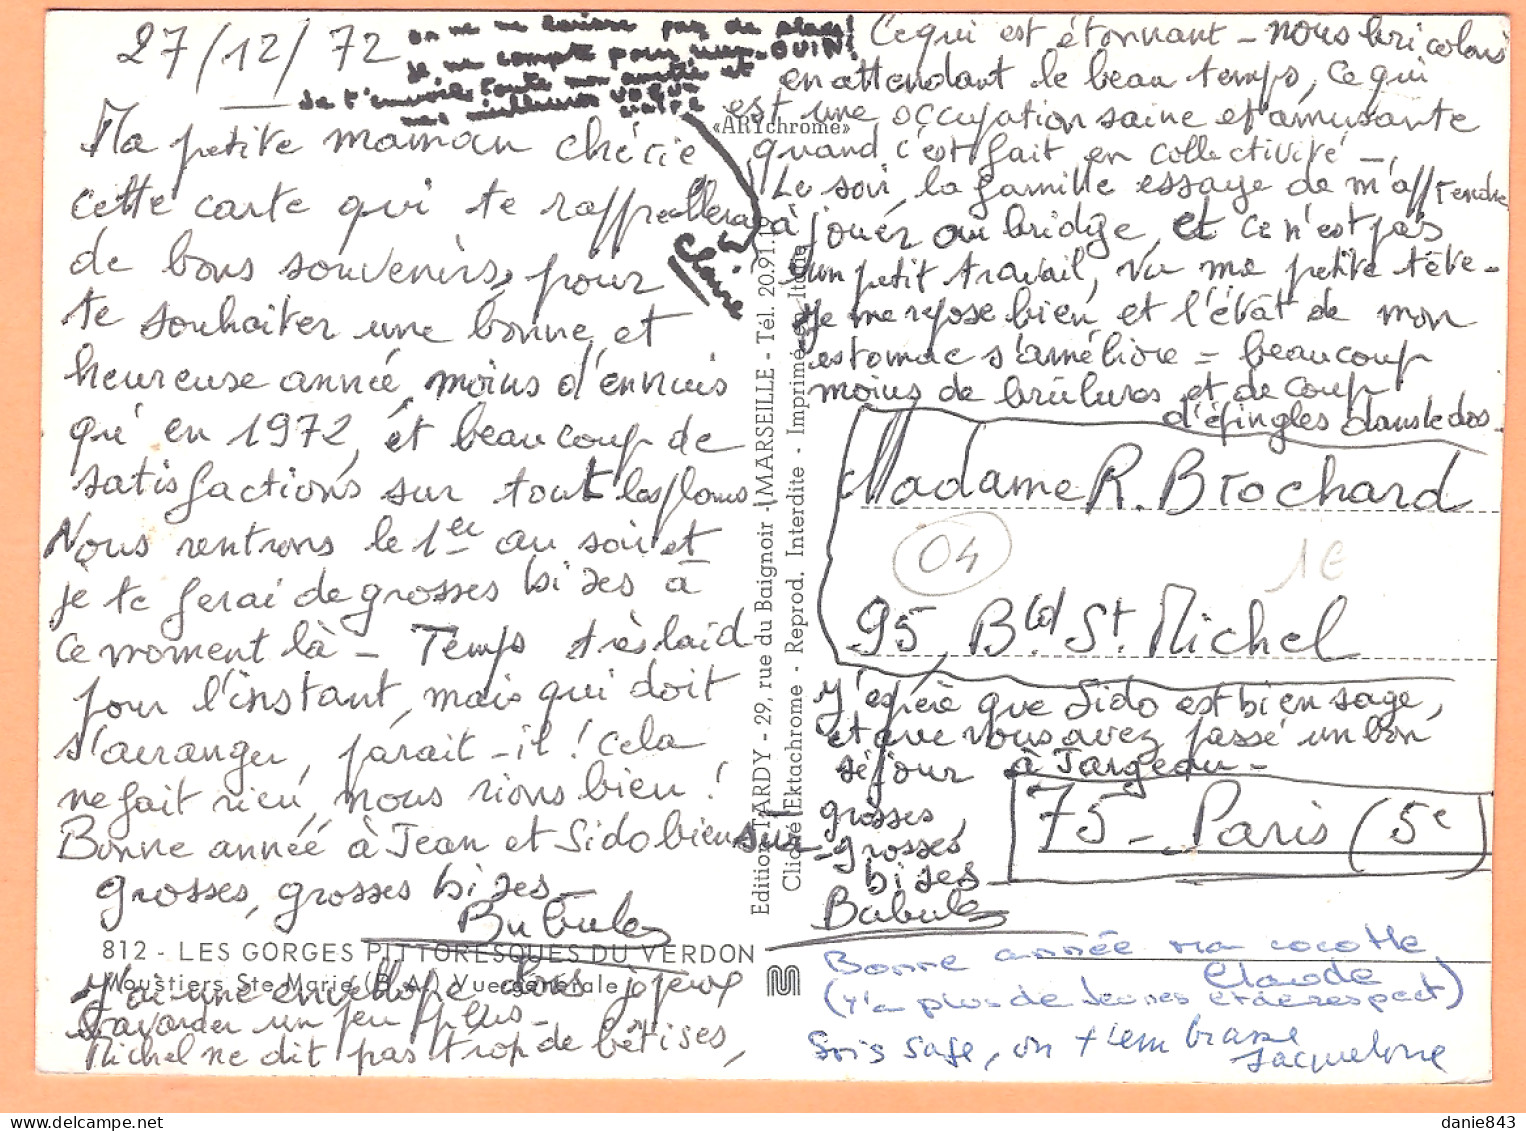 27/12/72
on ne me laisse pas de place!
je ne compte pour rien. OUIN!
Je t'envoie toute mon amitié et
mes meilleurs vœux
Claire
Ma petite maman chérie
cette carte qui te rappellera
de bons souvenirs, pour
te souhaiter une bonne et
heureuse année, moins d'ennuis
qu'en 1972, et beaucoup de
satisfactions sur tout les plans
Nous rentrons le 1er au soir et
je te ferai de grosses bises à
ce moment là - Temps très laid
pour l'instant, mais qui doit
s'arranger, parait-il! Cela
ne fait rien, nous rions bien!
Bonne année à Jean et Sido bien sûr
grosses, grosses bises -
Bubule
812 - LES GORGES PITTORESQUES DU VERDON
Moustiers Ste Marie (B.A.) Vue générale
J'ai une enveloppe alors je peux
bavarder un peu plus -
Michel ne dit pas trop de bêtises,
«ARTchrome»
Edition TARDY - 29, rue du Baignoir - MARSEILLE - Tél. 20.91.19
Cliché Ektachrome - Reprod. Interdite - Imprimé en Italie
Ce qui est étonnant - nous bricolons
en attendant le beau temps, ce qui
est une occupation saine et amusante
quand c'est fait en collectivité -,
Le soir, la famille essaye de m'apprendre
à jouer au bridge, et ce n'est pas
un petit travail, vu ma petite tête -
Je me repose bien et l'état de mon
estomac s'améliore = beaucoup
moins de brûlures et de coup
d'épingles dans le dos.
Madame R. Brochard
04
1€
95, Bld St Michel
J'espère que Sido est bien sage,
et que vous avez passé un bon
séjour à Jargeau -
75 - Paris (5e)
grosses,
- grosses
bises
Bubule
Bonne année ma cocotte
Claude
(Y'a plus de jeunes et de respect)
Sois sage, on t'embrasse
Jacqueline
danie843